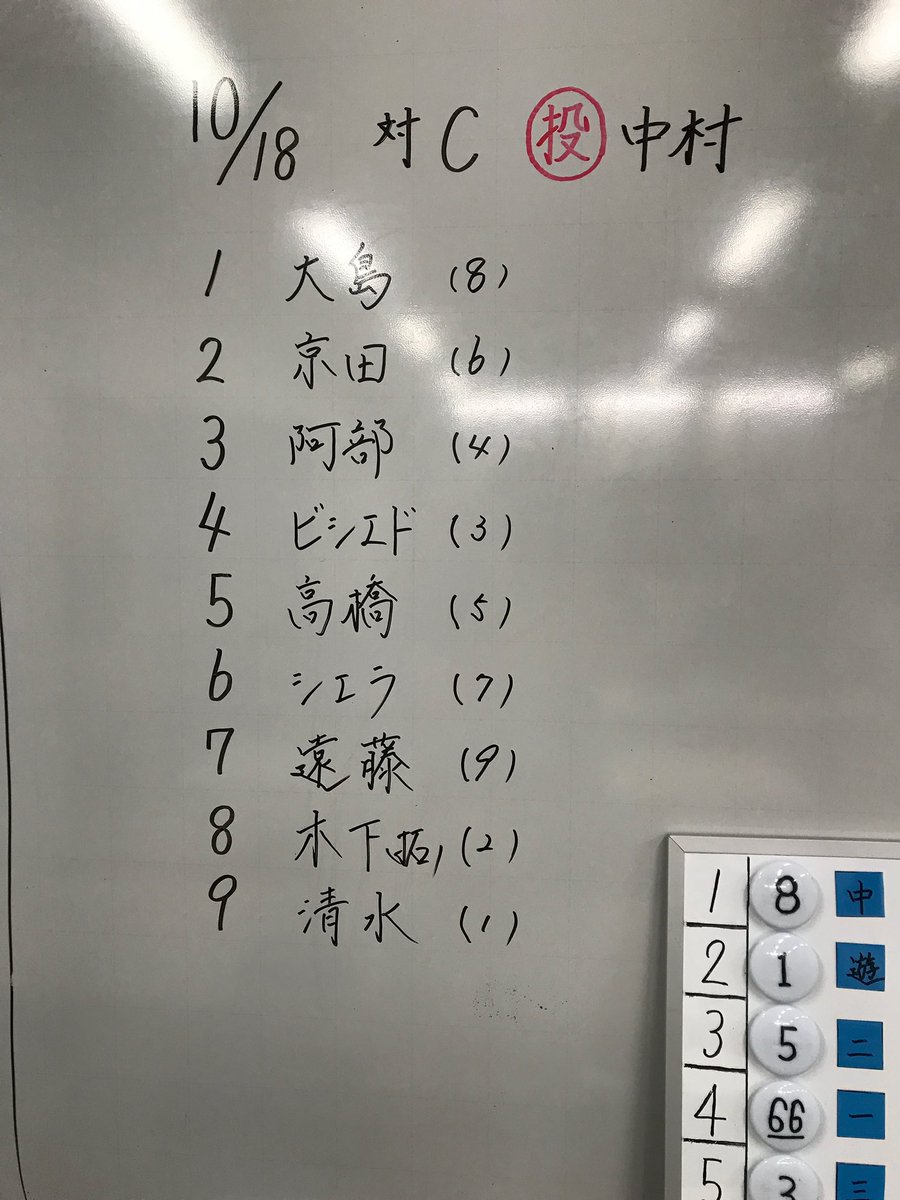 10/18 対C 投 中村
1 大島 (8)
2 京田 (6)
3 阿部 (4)
4 ビシエド (3)
5 高橋 (5)
6 シエラ (7)
7 遠藤 (9)
8 木下拓, (2)
9 清水 (1)
1 8 中
2 1 遊
3 5 二
4 66 一
5 3 三